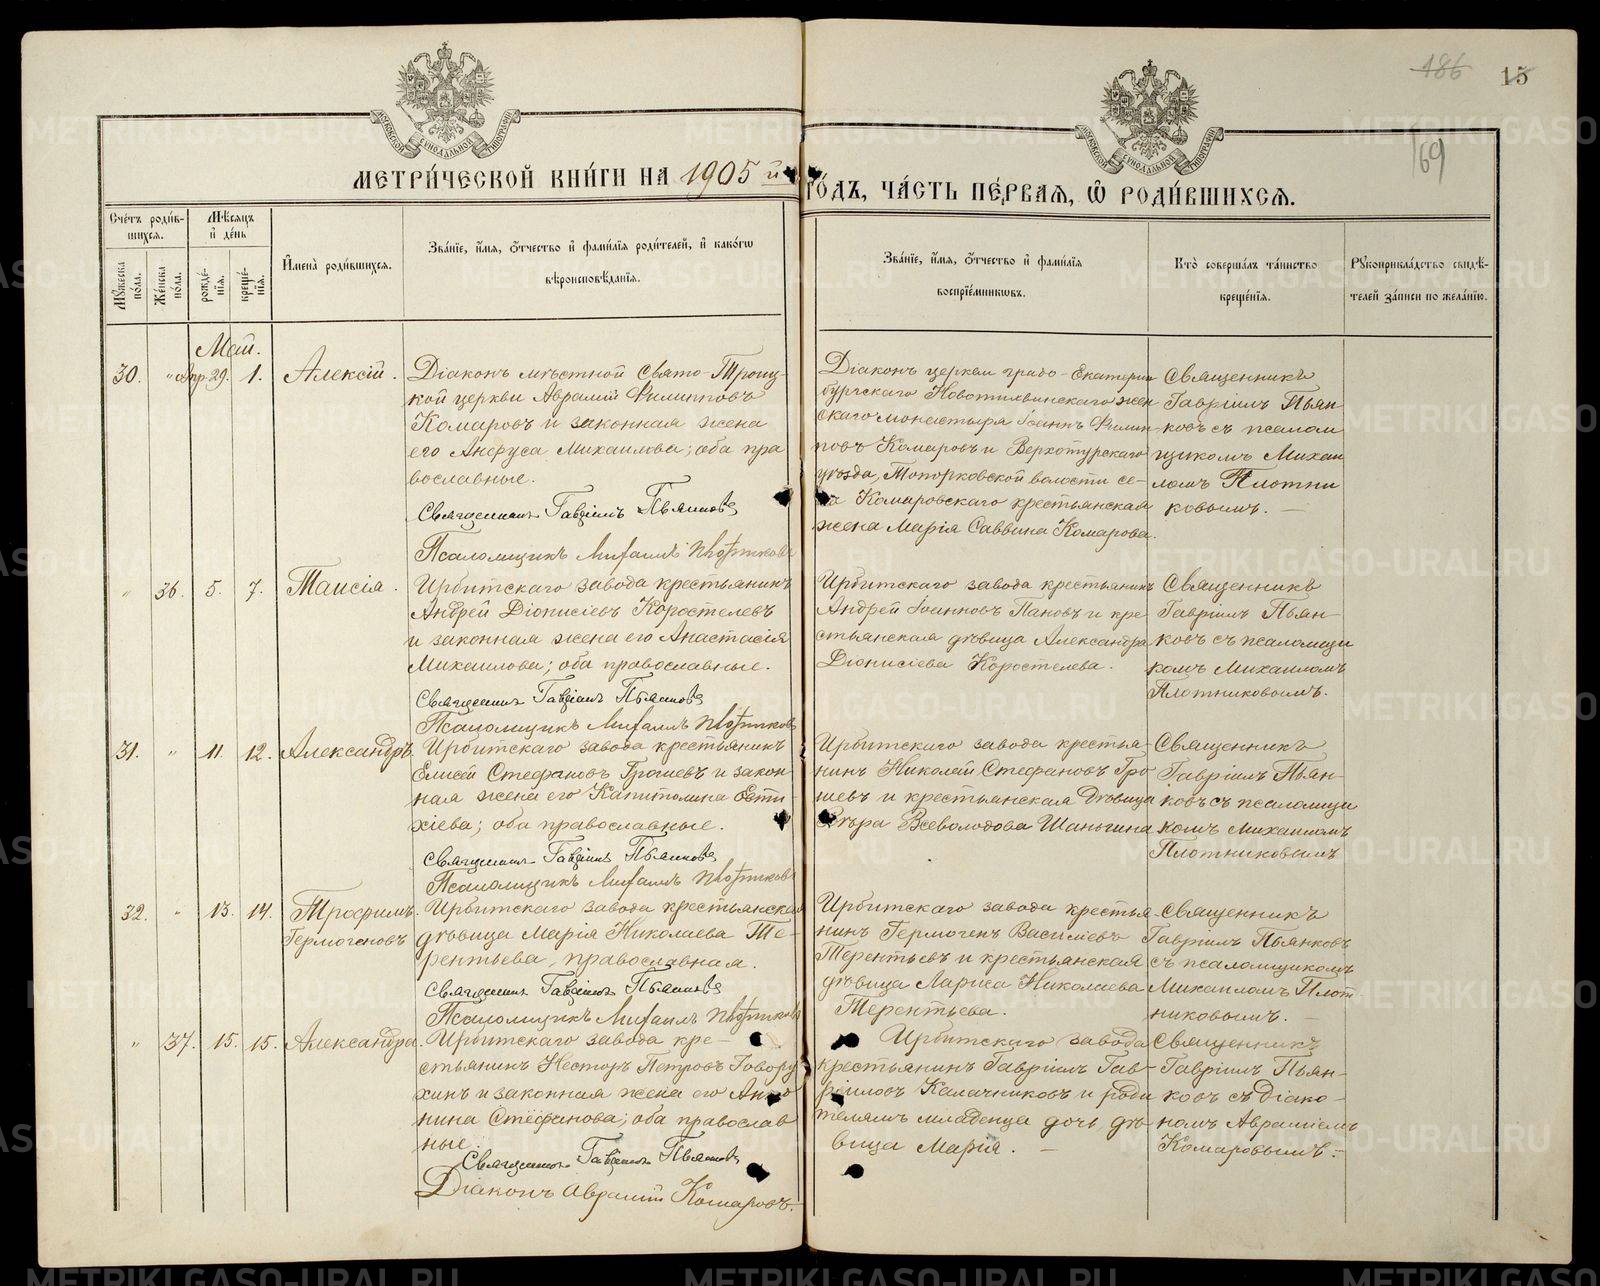 186 15
169
МЕТРИ́ЧЕСКОЙ КНИ́ГИ НА 1905 й ГО́ДЪ, ЧА́СТЬ ПЕ́РВАЯ, Ѡ РОДИ́ВШИХСЯ.
Сче́тъ роди́в-
шихся.
Мѣ́сяцъ
и҆ де́нь
Мꙋ́жеска
по́ла.
Же́нска
по́ла.
рожде́-
нїѧ.
креще́-
нїѧ.
И҆мена̀ роди́вшихся.
Зва́нїе, и҆́мѧ, ѻ҆́тчество и҆ фами́лїѧ роди́телей, и҆ како́гѡ
вѣроисповѣ́данїѧ.
Зва́нїе, и҆́мѧ, ѻ҆́тчество и҆ фами́лїѧ
воспрїе́мникѡвъ.
Кто̀ соверша́лъ та́инство
креще́нїѧ.
Рꙋкоприкла́дство свидѣ́-
телей за́писи по жела́нїю.
Май.
30. " Апр. 29. 1. Алексій.
Діаконъ мѣстной Свято-Троиц-
кой церкви Аврамій Филипповъ
Комаровъ и законная жена
его Анфуса Михаилова; оба пра
вославные.
Священникъ Гавріилъ Пьянковъ
Псаломщикъ Михаилъ Плотниковъ
Діаконъ церкви градо-Екатерин
бургскаго Новотихвинскаго жен
скаго монастыря Іоаннъ Филип-
повъ Комаровъ и Верхотурскаго
уѣзда, Топорковской волости се-
ла Комаровскаго крестьянская
жена Марія Саввина Комарова.
Священникъ
Гавріилъ Пьян
ковъ съ псалом
щикомъ Михаи
ломъ Плотни
ковымъ. —
" 36. 5. 7. Таисія.
Ирбитскаго завода крестьянинъ
Андрей Діонисіевъ Коростелевъ
и законная жена его Анастасія
Михаилова; оба православные.
Священникъ Гавріилъ Пьянковъ
Псаломщикъ Михаилъ Плотниковъ
Ирбитскаго завода крестьянинъ
Андрей Іоанновъ Пановъ и кре
стьянская дѣвица Александра
Діонисіева Коростелева.
Священникъ
Гавріилъ Пьян-
ковъ съ псаломщи
комъ Михаиломъ
Плотниковымъ.
31. " 11. 12. Александръ.
Ирбитскаго завода крестьянинъ
Елисей Стефановъ Грошевъ и закон
ная жена его Капитолина Евти-
хіева; оба православные.
Священникъ Гавріилъ Пьянковъ
Псаломщикъ Михаилъ Плотниковъ
Ирбитскаго завода крестья-
нинъ Николай Стефановъ Гро
шевъ и крестьянская дѣвица
Вѣра Всеволодова Шаньгина
Священникъ
Гавріилъ Пьян-
ковъ съ псаломщи
комъ Михаиломъ
Плотниковымъ
32. " 13. 14. Трофимъ
Гермогеновъ
Ирбитскаго завода крестьянская
дѣвица Марія Николаева Те-
рентьева, православная.
Священникъ Гавріилъ Пьянковъ
Псаломщикъ Михаилъ Плотниковъ
Ирбитскаго завода крестья-
нинъ Гермогенъ Василіевъ
Терентьевъ и крестьянская
дѣвица Лариса Николаева
Терентьева.
Священникъ
Гавріилъ Пьянковъ
съ псаломщикомъ
Михаиломъ Плот-
никовымъ. —
" 37. 15. 15. Александра.
Ирбитскаго завода кре-
стьянинъ Несторъ Петровъ Говору
хинъ и законная жена его Анто
нина Стефанова; оба православ
ные.
Священникъ Гавріилъ Пьянковъ
Діаконъ Аврамій Комаровъ.
Ирбитскаго завода
крестьянинъ Гавріилъ Гав-
ріиловъ Калачниковъ и роди
телямъ младенца дочь дѣ-
вица Марія. —
Священникъ
Гавріилъ Пьян-
ковъ съ Діако-
номъ Авраміемъ
Комаровымъ. —
METRIKI.GASO-URAL.RU